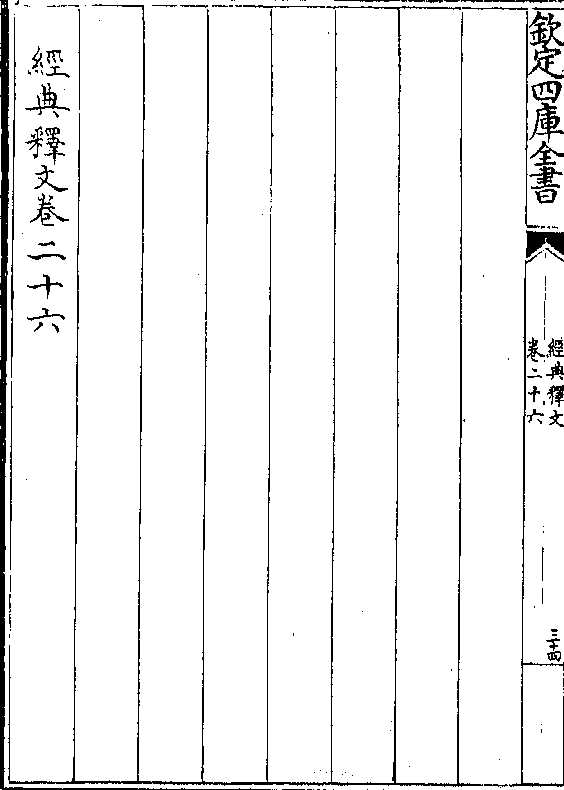 欽定四庫全書
經典釋文
卷二十六
三十四
經典釋文卷二十六